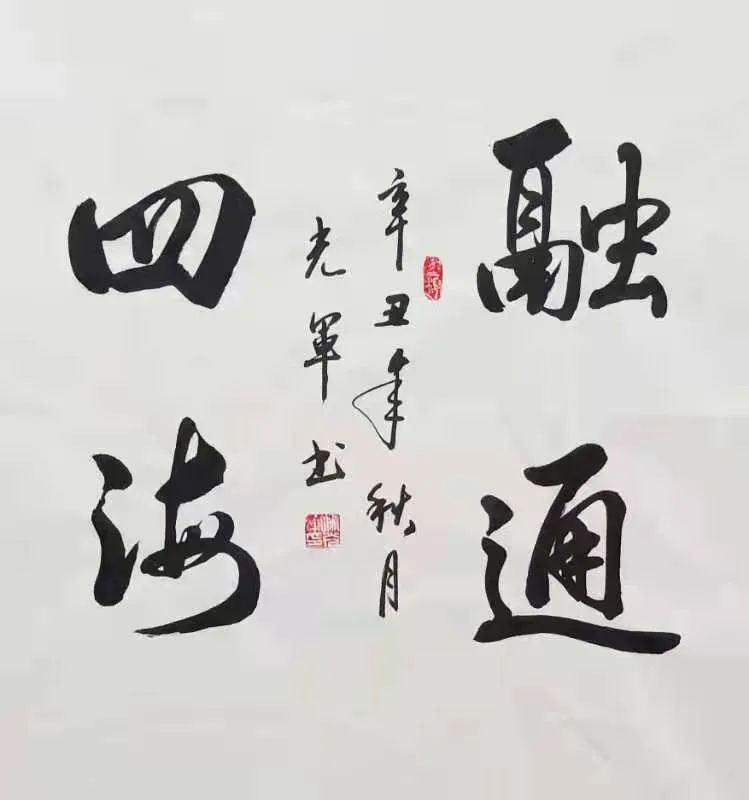 融通
四海
辛丑年秋月
光军书